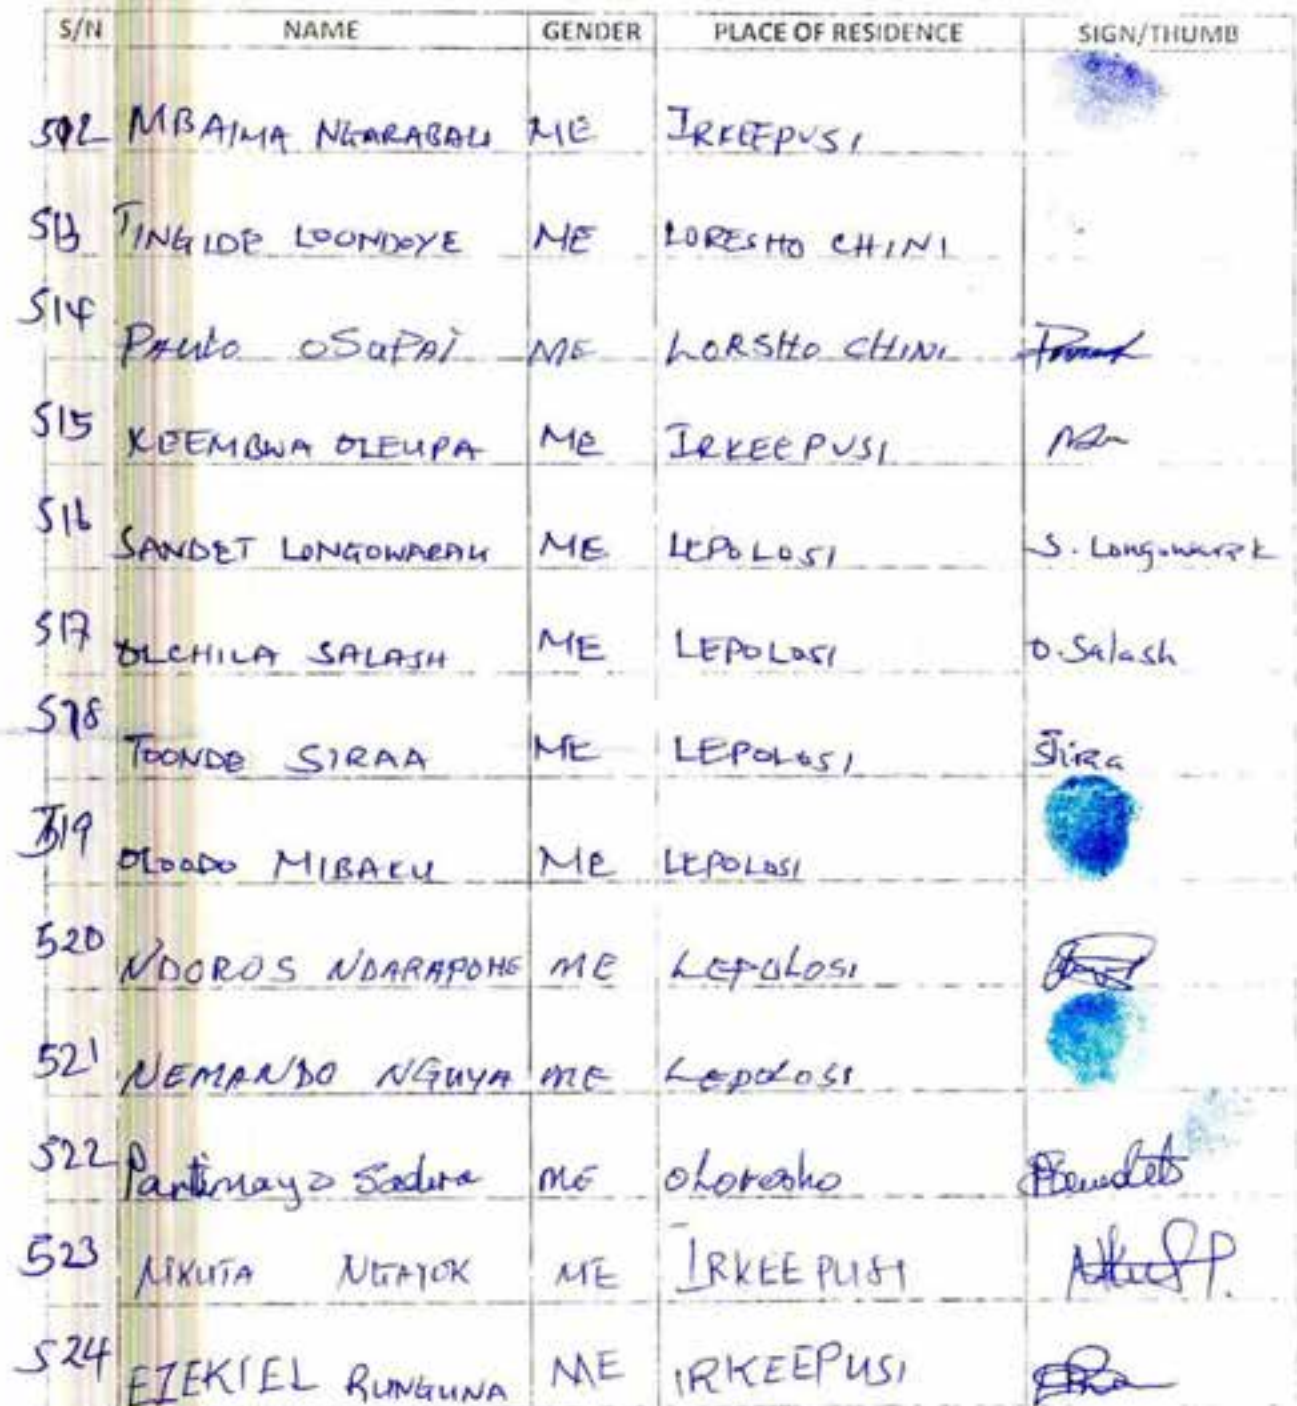 S/N NAME GENDER PLACE OF RESIDENCE SIGN/THUMB
512 MBAIMA NGARABALI ME IRKEEPUSI
513 TINGIDE LOONDOYE ME LORESHO CHINI
514 PAULO OSUPAI ME LORSHO CHINI
515 KEEMBWA OLEUPA ME IRKEEPUSI
516 SANDET LONGOWARAK ME LEPOLOSI S. Longowarak
517 OLCHILA SALASH ME LEPOLOSI O. Salash
518 TOONDE SIRAA ME LEPOLOSI Sira
519 OLOODO MIBAKU ME LEPOLOSI
520 NDOROS NDARAPOHE ME LEPOLOSI
521 NEMANDO NGUYA ME LEPOLOSI
522 Partimayo Sadera ME oLoresho
523 NIKUTA NGAYOK ME IRKEEPUSI
524 EZEKIEL RUNGUNA ME IRKEEPUSI